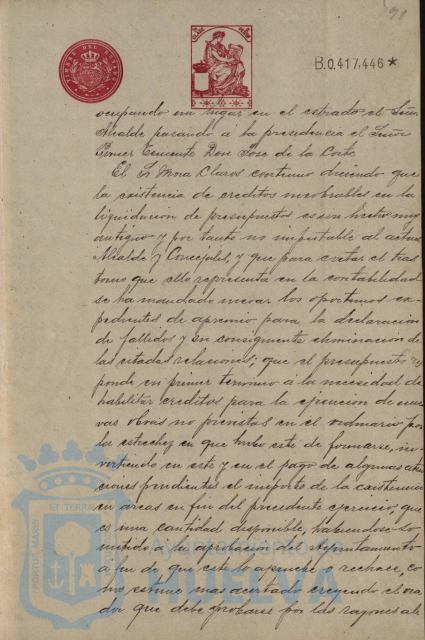 91
TIMBRE DEL ESTADO
B.0.417,446*
ocupando su lugar en el estrado el Señor
Alcalde pasando a la presidencia el Señor
Primer Teniente Don Jose de la Corte
El Sr Mora Claros continuo diciendo que
la existencia de creditos incobrables en la
liquidacion de presupuestos es un hecho muy
antiguo y por tanto no imputable al actual
Alcalde y Concejales, y que para evitar el tras
torno que ello representa en la contabilidad
se ha mandado incoar los oportunos ex-
pedientes de apremio para la declaracion
de fallidos y su consiguiente eliminacion de
las citadas relaciones; que el presupuesto res
ponde en primer termino á la necesidad de
habilitar creditos para la ejecucion de nue
vas obras no previstas en el ordinario por
la estrechez en que hubo este de formarse, in-
virtiendo en este y en el pago de algunas aten
ciones pendientes el importe de la existencia
en arcas en fin del precedente ejercicio, que
es una cantidad disponible, habiendose so
metido a la aprobacion del Ayuntamiento
a fin de que este lo apruebe o rechace, co
mo estime mas acertado creyendo el ora
dor que debe aprobarse por las razones ale
PORTUS MARIS ET TERRA
Ayuntamiento de
HUELVA